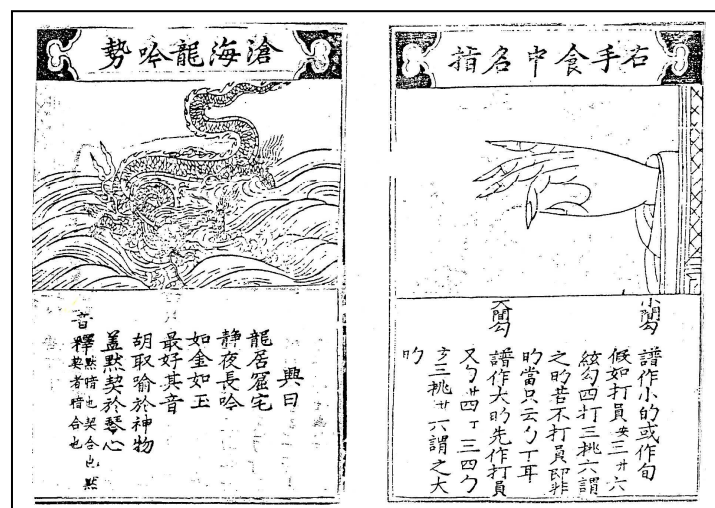 右手食中名指
小間勾
譜作小旳或作旬
假如打員 三廾六
絃勾四打三挑六謂
之旳若不打員即非
旳當只云勹丁耳
大間勾
譜作大旳先作打員
又勹廾四丁三四勹
三挑廾六謂之大
旳
滄海龍吟勢
興曰
龍居窟宅
靜夜長吟
如金如玉
最好其音
胡取喻於神物
蓋默契於琴心
音釋
默暗也契合也默
契者暗合也